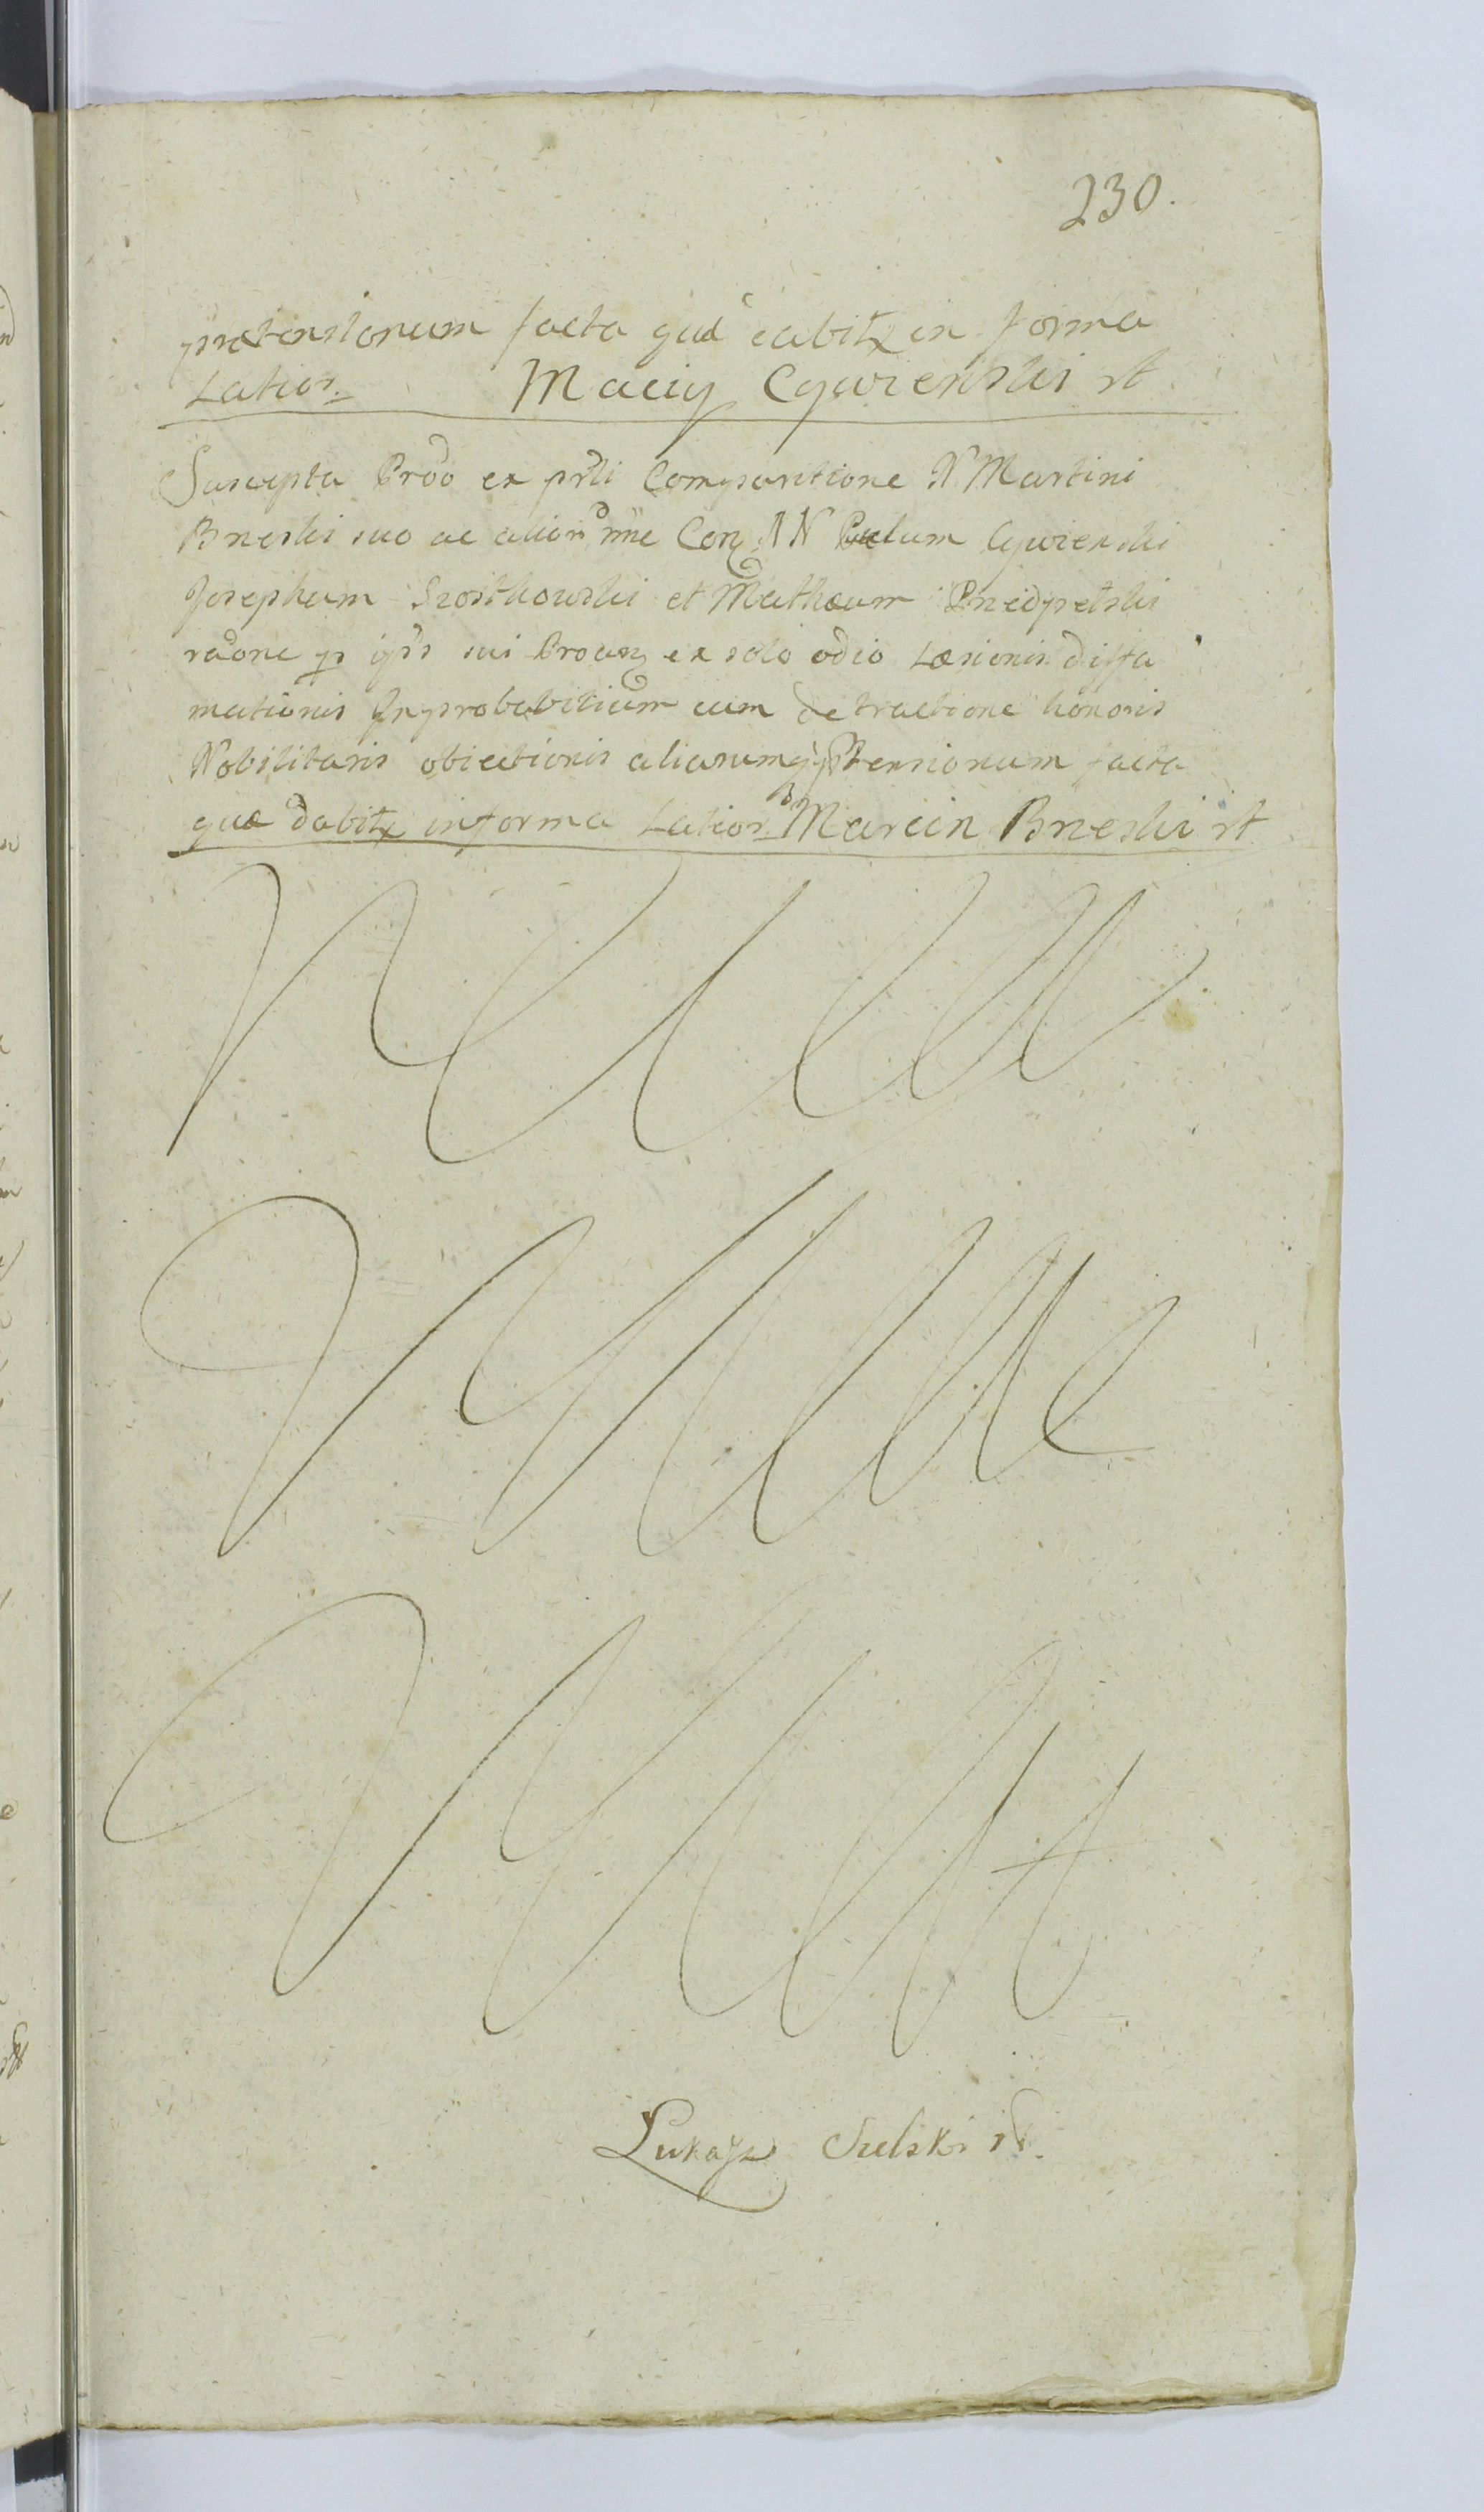 230.
prætensionum facta quæ dabitx in forma
Latior. Maciy Cywienski st
Suscepta Prõo ex pr̃li Comparitione N Martini
Brzeski suo ac alior nñe Con NN Paulum Cywienski
Josephum Szostkowski et Mathæum
raõne p ip̃s sui ex solo odio Læsionis diffa
mationis Improbabilium cum detractione honoris
Nobilitaris obiectionis aliarumq̀ p̃tensionum facta
quæ dabitx in forma Latior Marcin Brzeski st
Lukasz Sulski st.